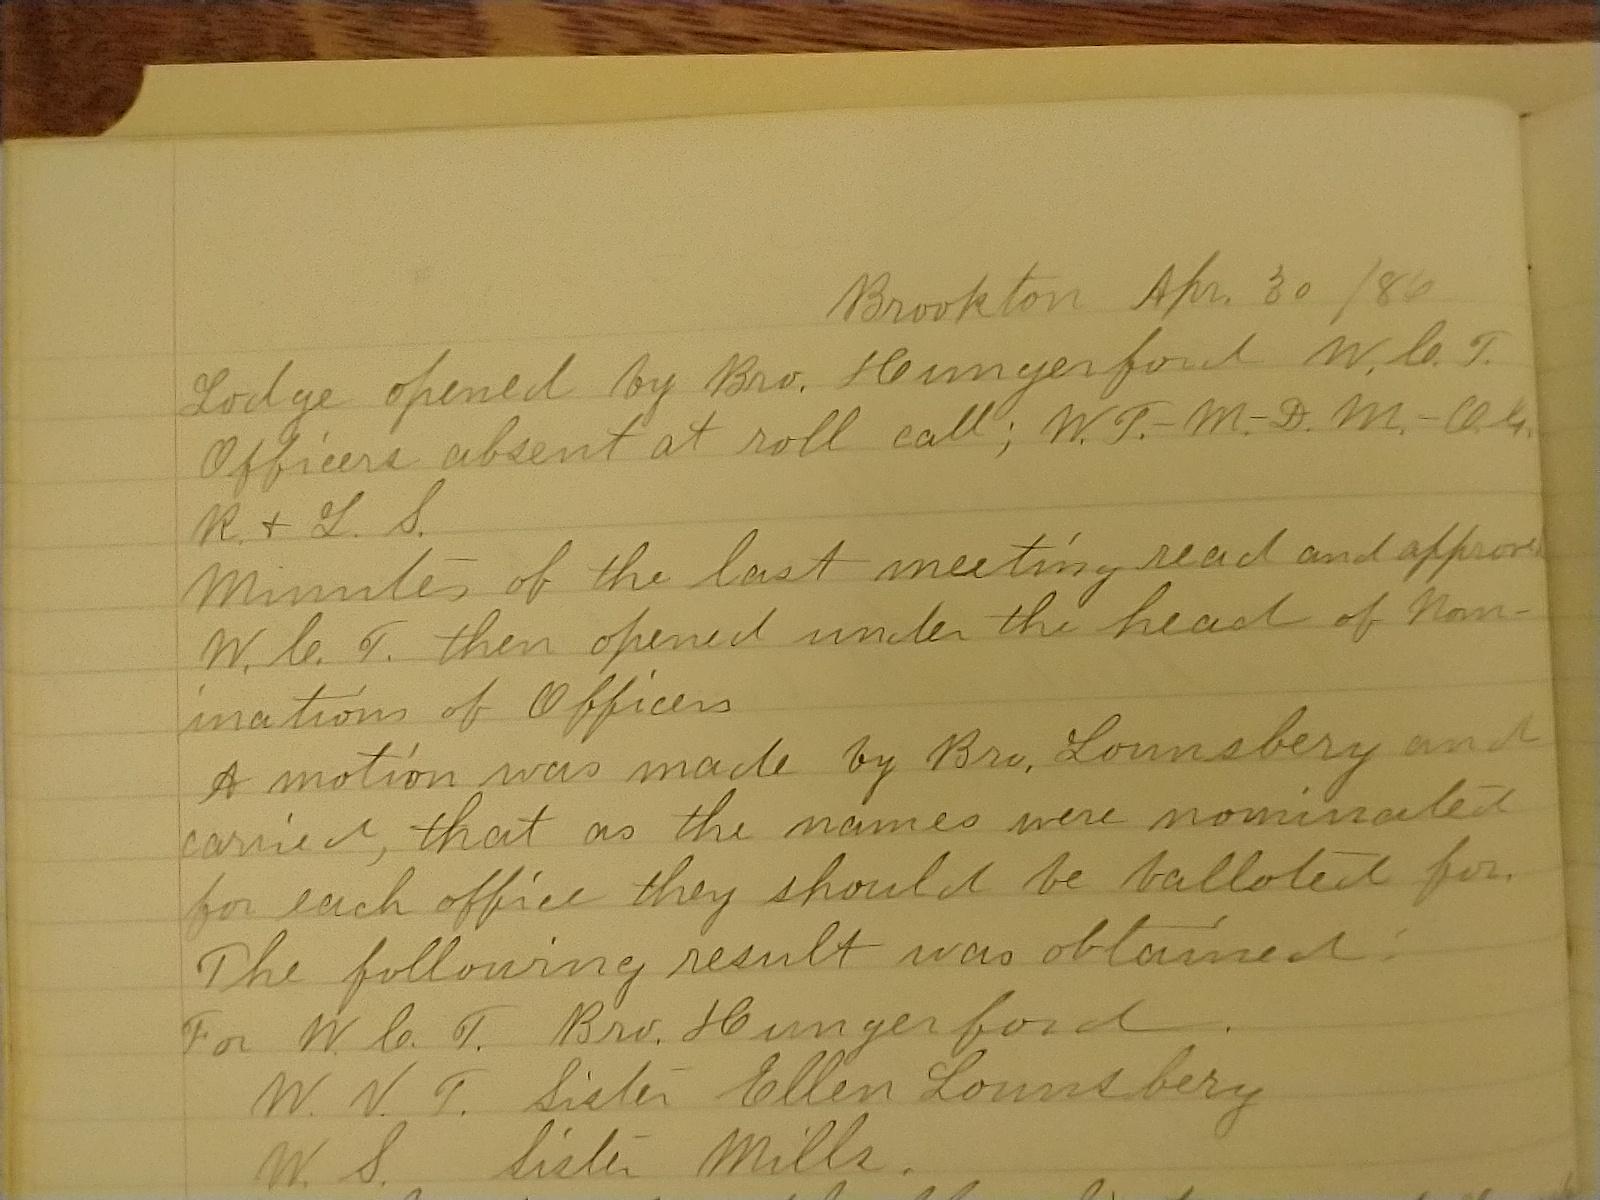 Brookton Apr. 30 /86
Lodge opened by Bro. Hungerford W. C. T.
Officers absent at roll call; W. T.- M.- D. M.- O. G.
R. + L. S.
Minutes of the last meeting read and approved
W. C. T. then opened under the head of Nom-
inations of Officers
A motion was made by Bro. Lounsbery and
carried, that as the names were nominated
for each office they should be balloted for.
The following result was obtained:
For W. C. T. Bro. Hungerford.
W. V. T. Sister Ellen Lounsbery
W. S. Sister Mills.